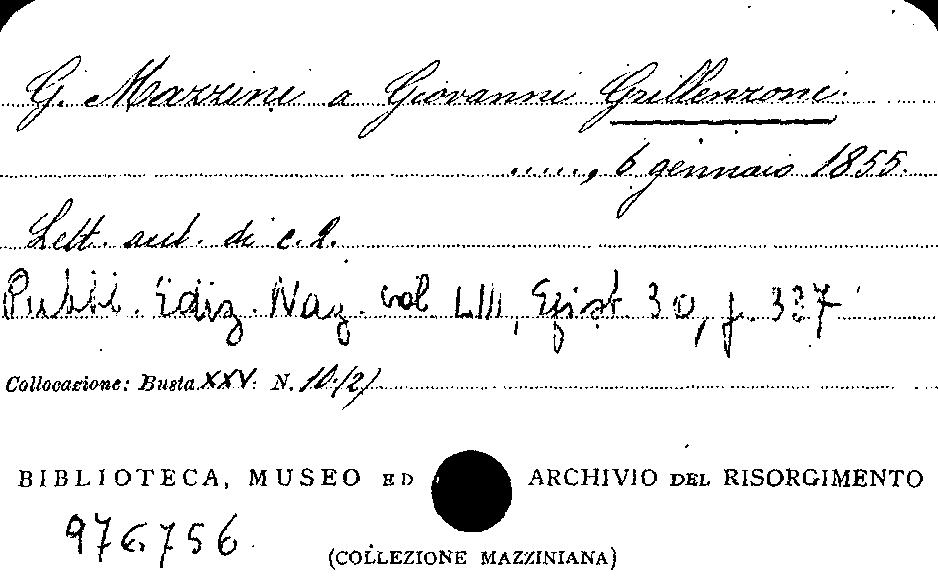 G. Mazzini a Giovanni Grillenzoni.
....., 6 gennaio 1855.
Lett. aut. di c. 2.
Pubbl. Ediz. Naz. vol. LIII, Epist. 30, p. 337
Collocazione: Busta XXV. N. 10.(2)
BIBLIOTECA, MUSEO ED ARCHIVIO DEL RISORGIMENTO
976756
(COLLEZIONE MAZZINIANA)